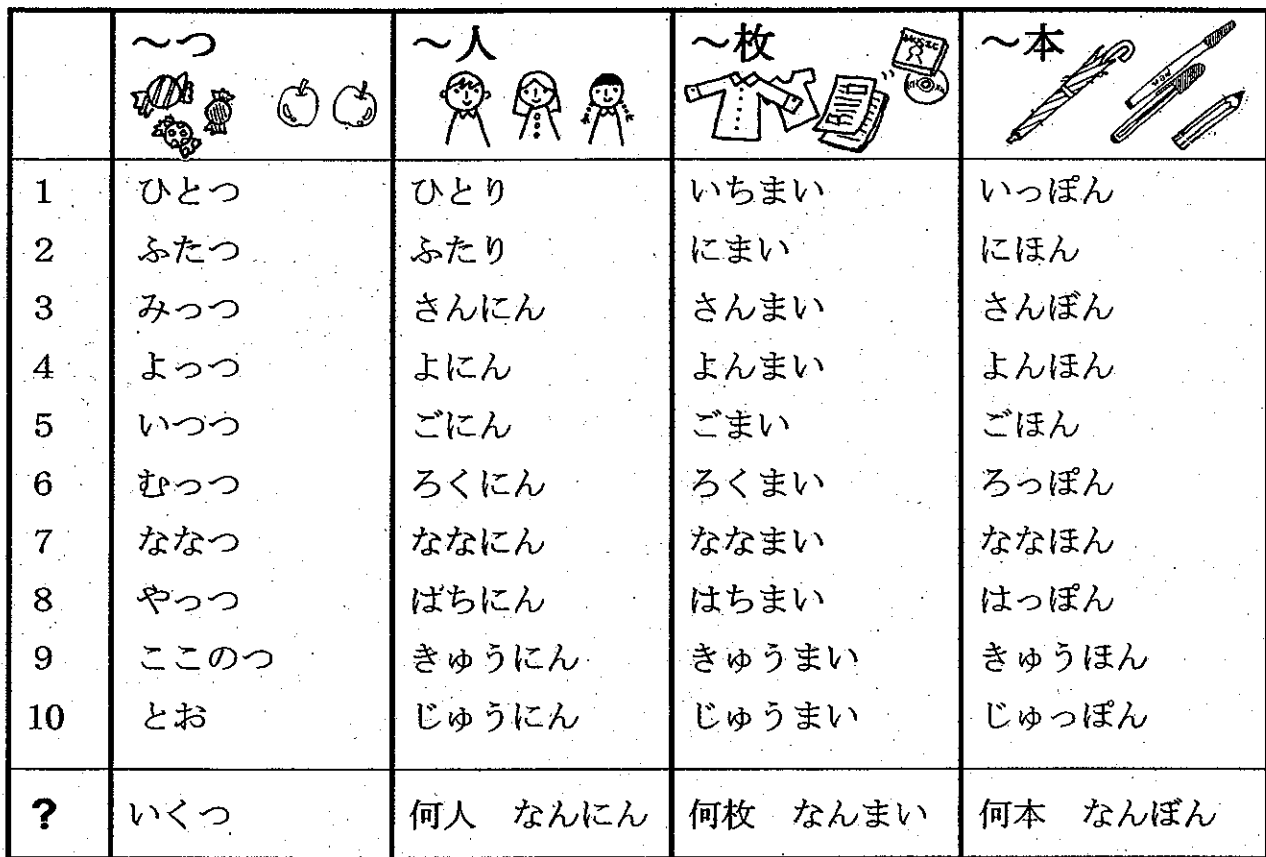 ～つ ～人 ～枚 ～本
1 ひとつ ひとり いちまい いっぽん
2 ふたつ ふたり にまい にほん
3 みっつ さんにん さんまい さんぼん
4 よっつ よにん よんまい よんほん
5 いつつ ごにん ごまい ごほん
6 むっつ ろくにん ろくまい ろっぽん
7 ななつ ななにん ななまい ななほん
8 やっつ はちにん はちまい はっぽん
9 ここのつ きゅうにん きゅうまい きゅうほん
10 とお じゅうにん じゅうまい じゅっぽん
? いくつ 何人 なんにん 何枚 なんまい 何本 なんぼん